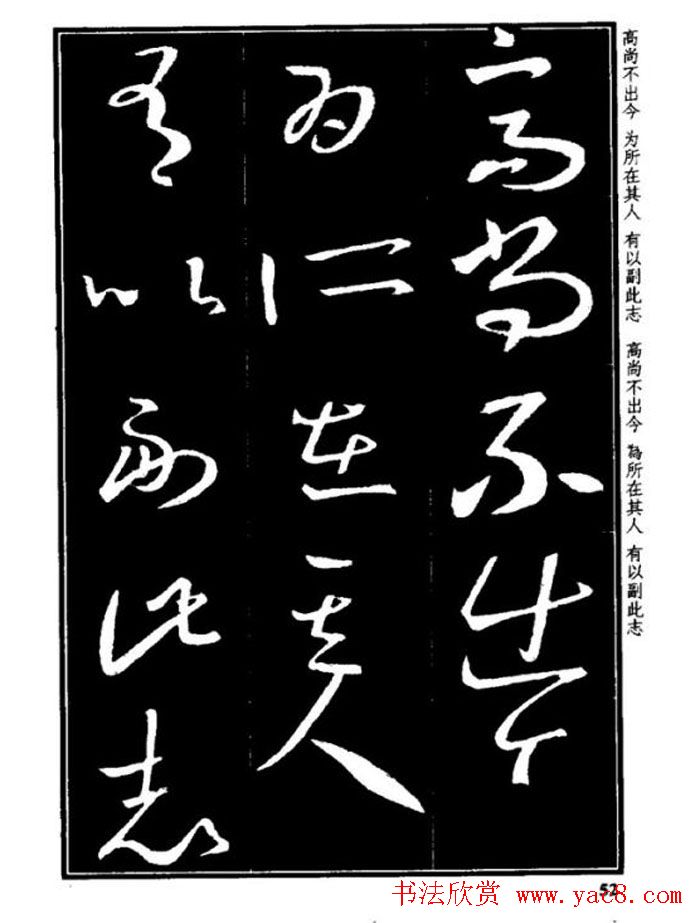 高尚不出今 为所在其人 有以副此志 高尚不出今 為所在其人 有以副此志
高尚不出今
為所在其人
有以副此志
52
书法欣赏 www.yac8.com